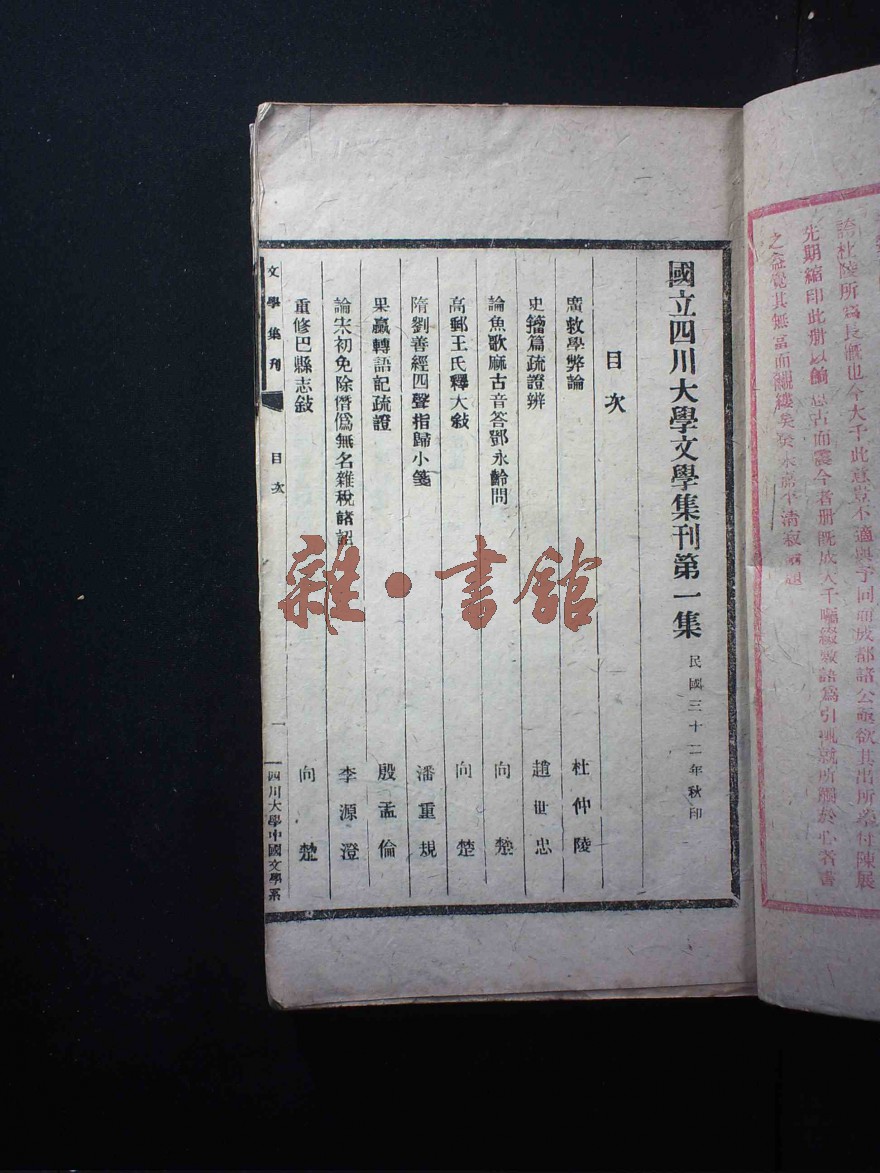 論杜陵所爲長慨也今大千此意豈不適與予同而成都諸公亟欲其出所摹付陳展
先期縮印此册以餉思古而震今者册既成大千囑綴數語爲引輒就所觸於心者書
之益覺其無當而覼縷矣癸未
清寂
國立四川大學文學集刊第一集 民國三十二年秋印
目次
廣救學弊論 杜仲陵
史籀篇疏證辨 趙世忠
論魚歌麻古音答鄧永齡問 向楚
高郵王氏釋大敍 向楚
隋劉善經四聲指歸小箋 潘重規
果臝轉語記疏證 殷孟倫
論宋初免除僭僞無名雜稅諸詔 李源澄
重修巴縣志敍 向楚
文學集刊 目次 一 四川大學中國文學系
雜·書館